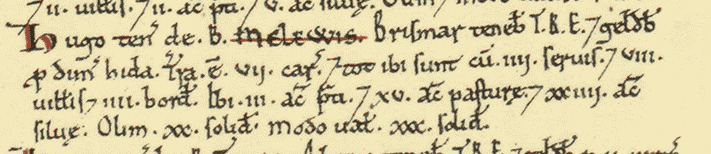 ⁊ ii. uillis. ⁊ ii. ac̄ p̄ti. ⁊ v. ac̄ siluę.
Hugo teñ de .B. MELEWIS. Brismar teneb̄ T.R.E. ⁊ geld̄b
p̄ dim̄ hida. Tr̄a .ē. vii. car̄. ⁊ tot ibi sunt cū .iiii. seruis. ⁊ viii.
uill̄is ⁊ iiii. bord̄. Ibi .iii. ac̄ p̄ti. ⁊ xv. ac̄ pasturę. ⁊ xxiiii. ac̄
siluę. Olim .xx. solid̄. modo ual̄ .xxx. solid̄.
T.R.E. ⁊